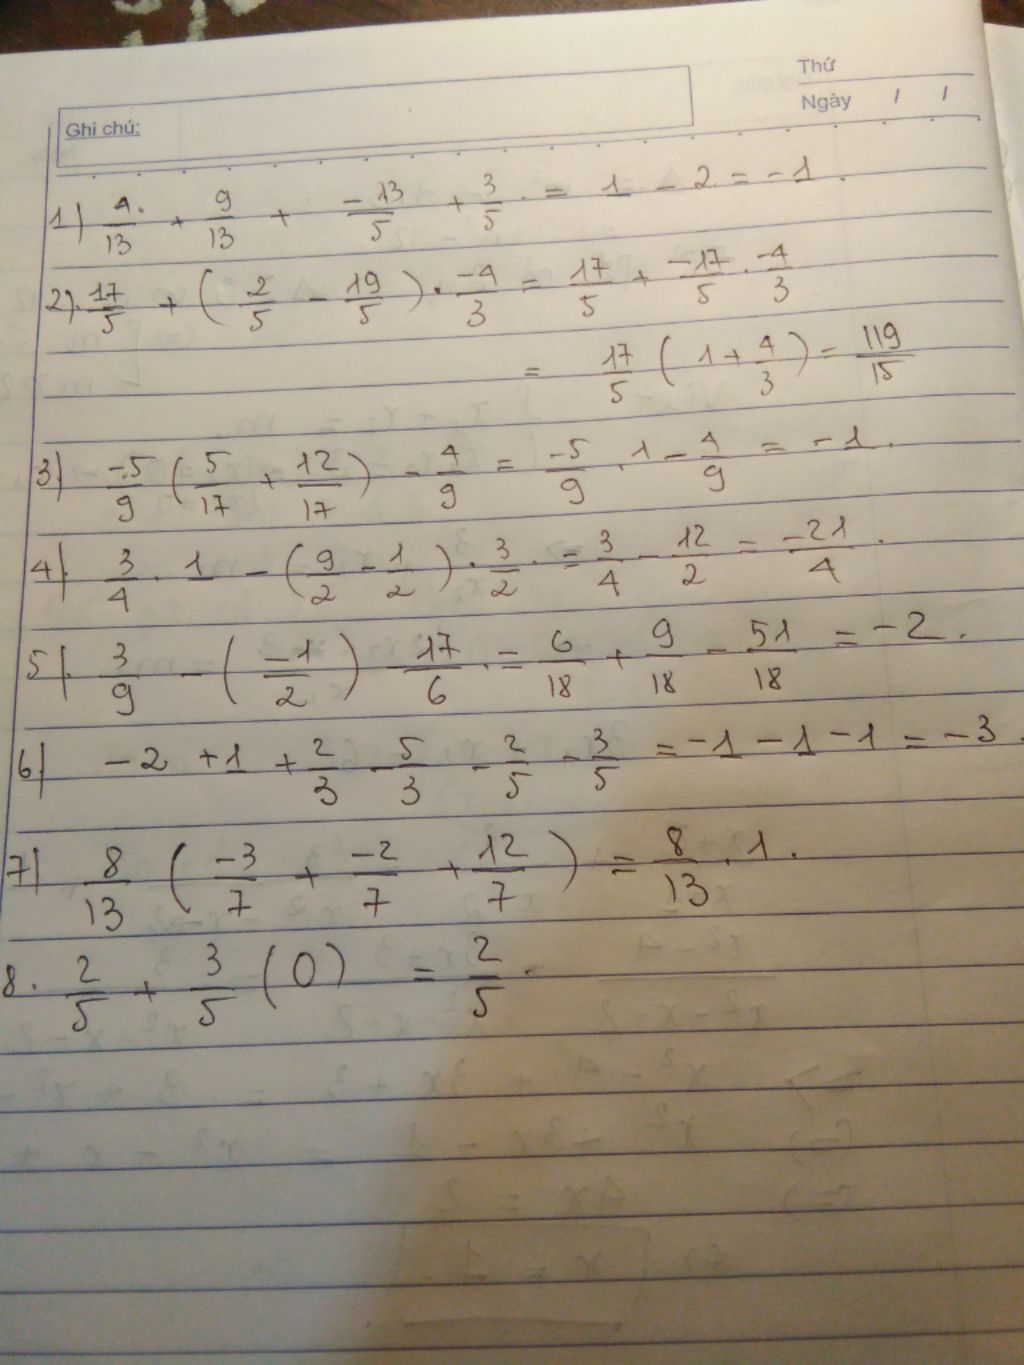 Thứ
Ngày / /
Ghi chú:
1) 4/13 + 9/13 + -13/5 + 3/5 = 1 - 2 = -1.
2). 17/5 + (2/5 - 19/5) . -4/3 = 17/5 + -17/5 . -4/3
= 17/5 (1 + 4/3) = 119/15
3) -5/9 (5/17 + 12/17) - 4/9 = -5/9 . 1 - 4/9 = -1.
4) 3/4 . 1 - (9/2 - 1/2) . 3/2 = 3/4 - 12/2 = -21/4.
5) 3/9 - (-1/2) - 17/6 = 6/18 + 9/18 - 51/18 = -2.
6) -2 + 1 + 2/3 - 5/3 - 2/5 - 3/5 = -1 - 1 - 1 = -3.
7) 8/13 (-3/7 + -2/7 + 12/7) = 8/13 . 1.
8. 2/5 + 3/5 (0) = 2/5.